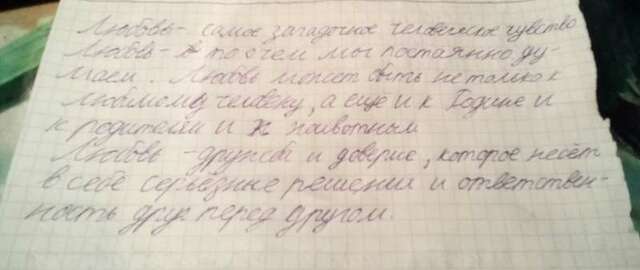 Любовь - самое загадочное человеческое чувство
Любовь - то о чем мы постоянно ду-
маем. Любовь может быть не только к
любимому человеку, а еще и к Родине и
к родителям и к животным
Любовь - дружба и доверие, которое несёт
в себе серьёзные решения и ответствен-
ность друг перед другом.